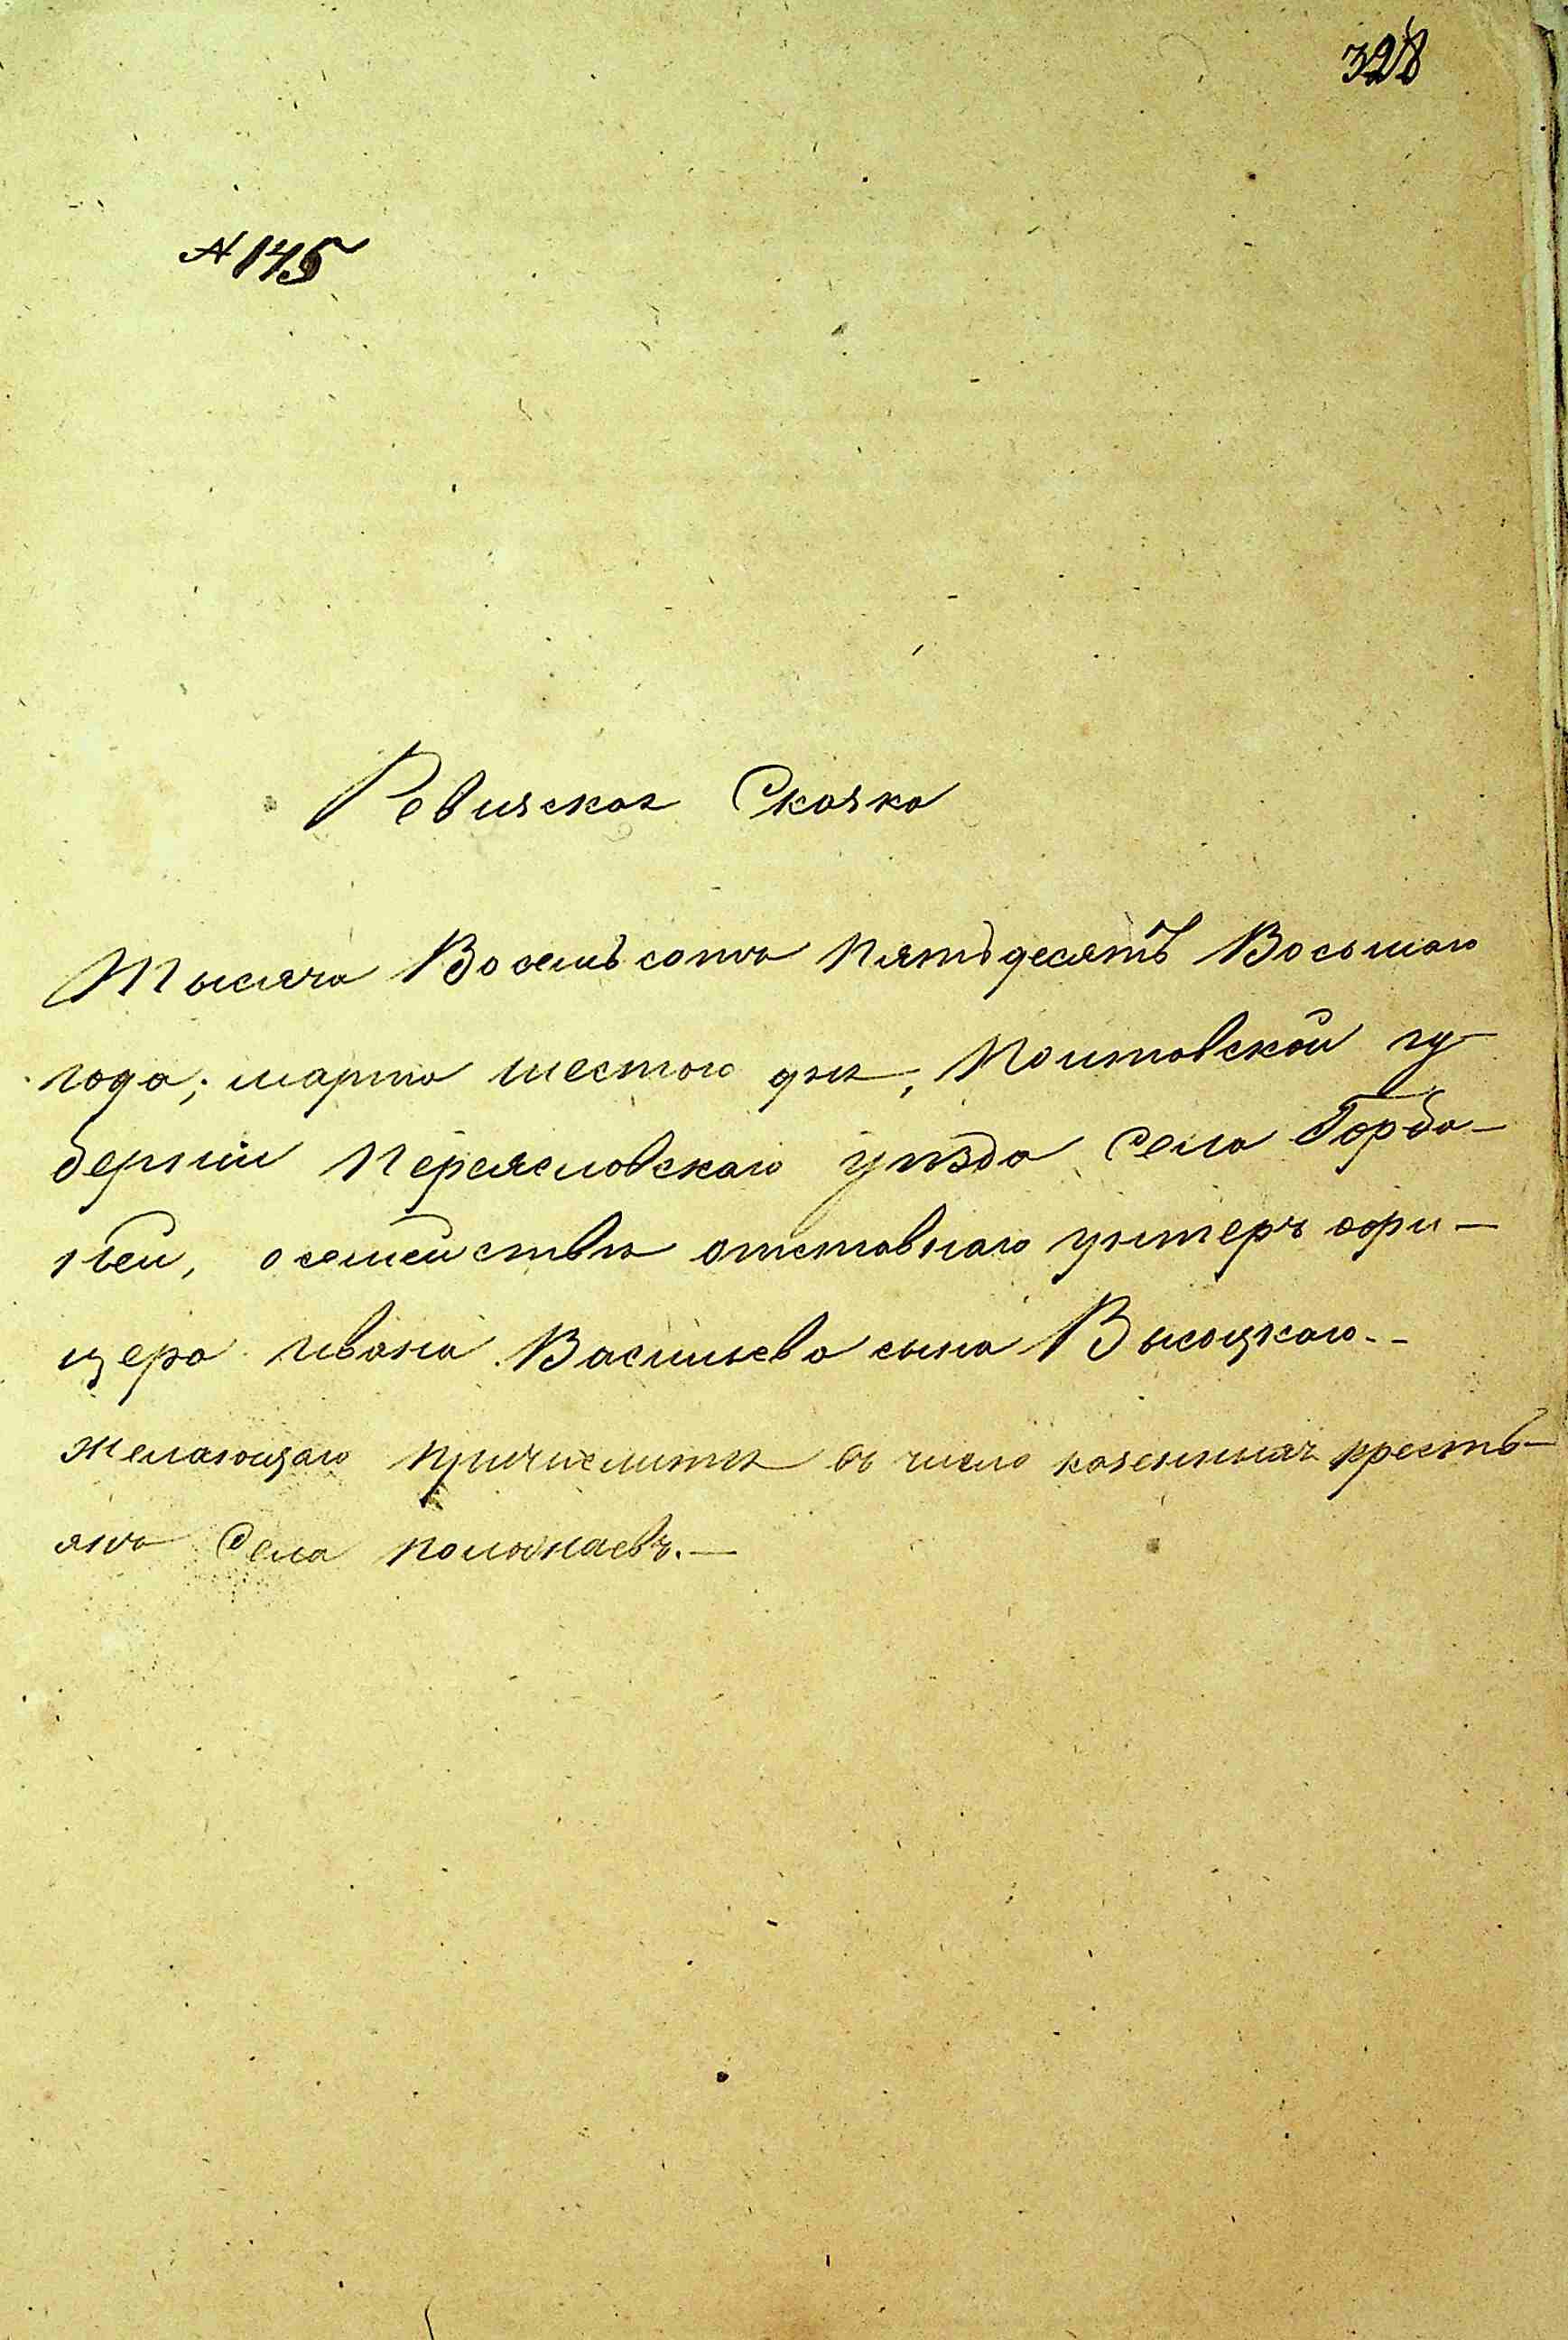 328
№ 145
Ревижская Скаска
Тысяча Восемьсотъ Пятьдесятъ Восьмаго
года, марта шестого дня, Полтавской гу-
берніи Переяславскаго уѣзда Села Горба-
ней, о семействѣ отставнаго унтеръ офи-
цера Ивана Васильева сына Высоцкаго.-
желающаго причислится въ число казенныхъ кресть-
янъ Села